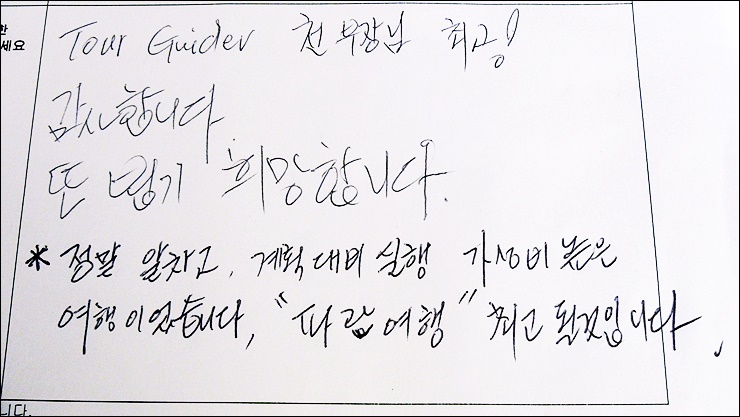 한
세요
Tour Guider 천 부장님 최고!
감사합니다
또 뵙기 희망합니다.
* 정말 알차고, 계획대비 실행 가성비 높은
여행이었습니다, "파랑여행" 최고 될것입니다.
니다.